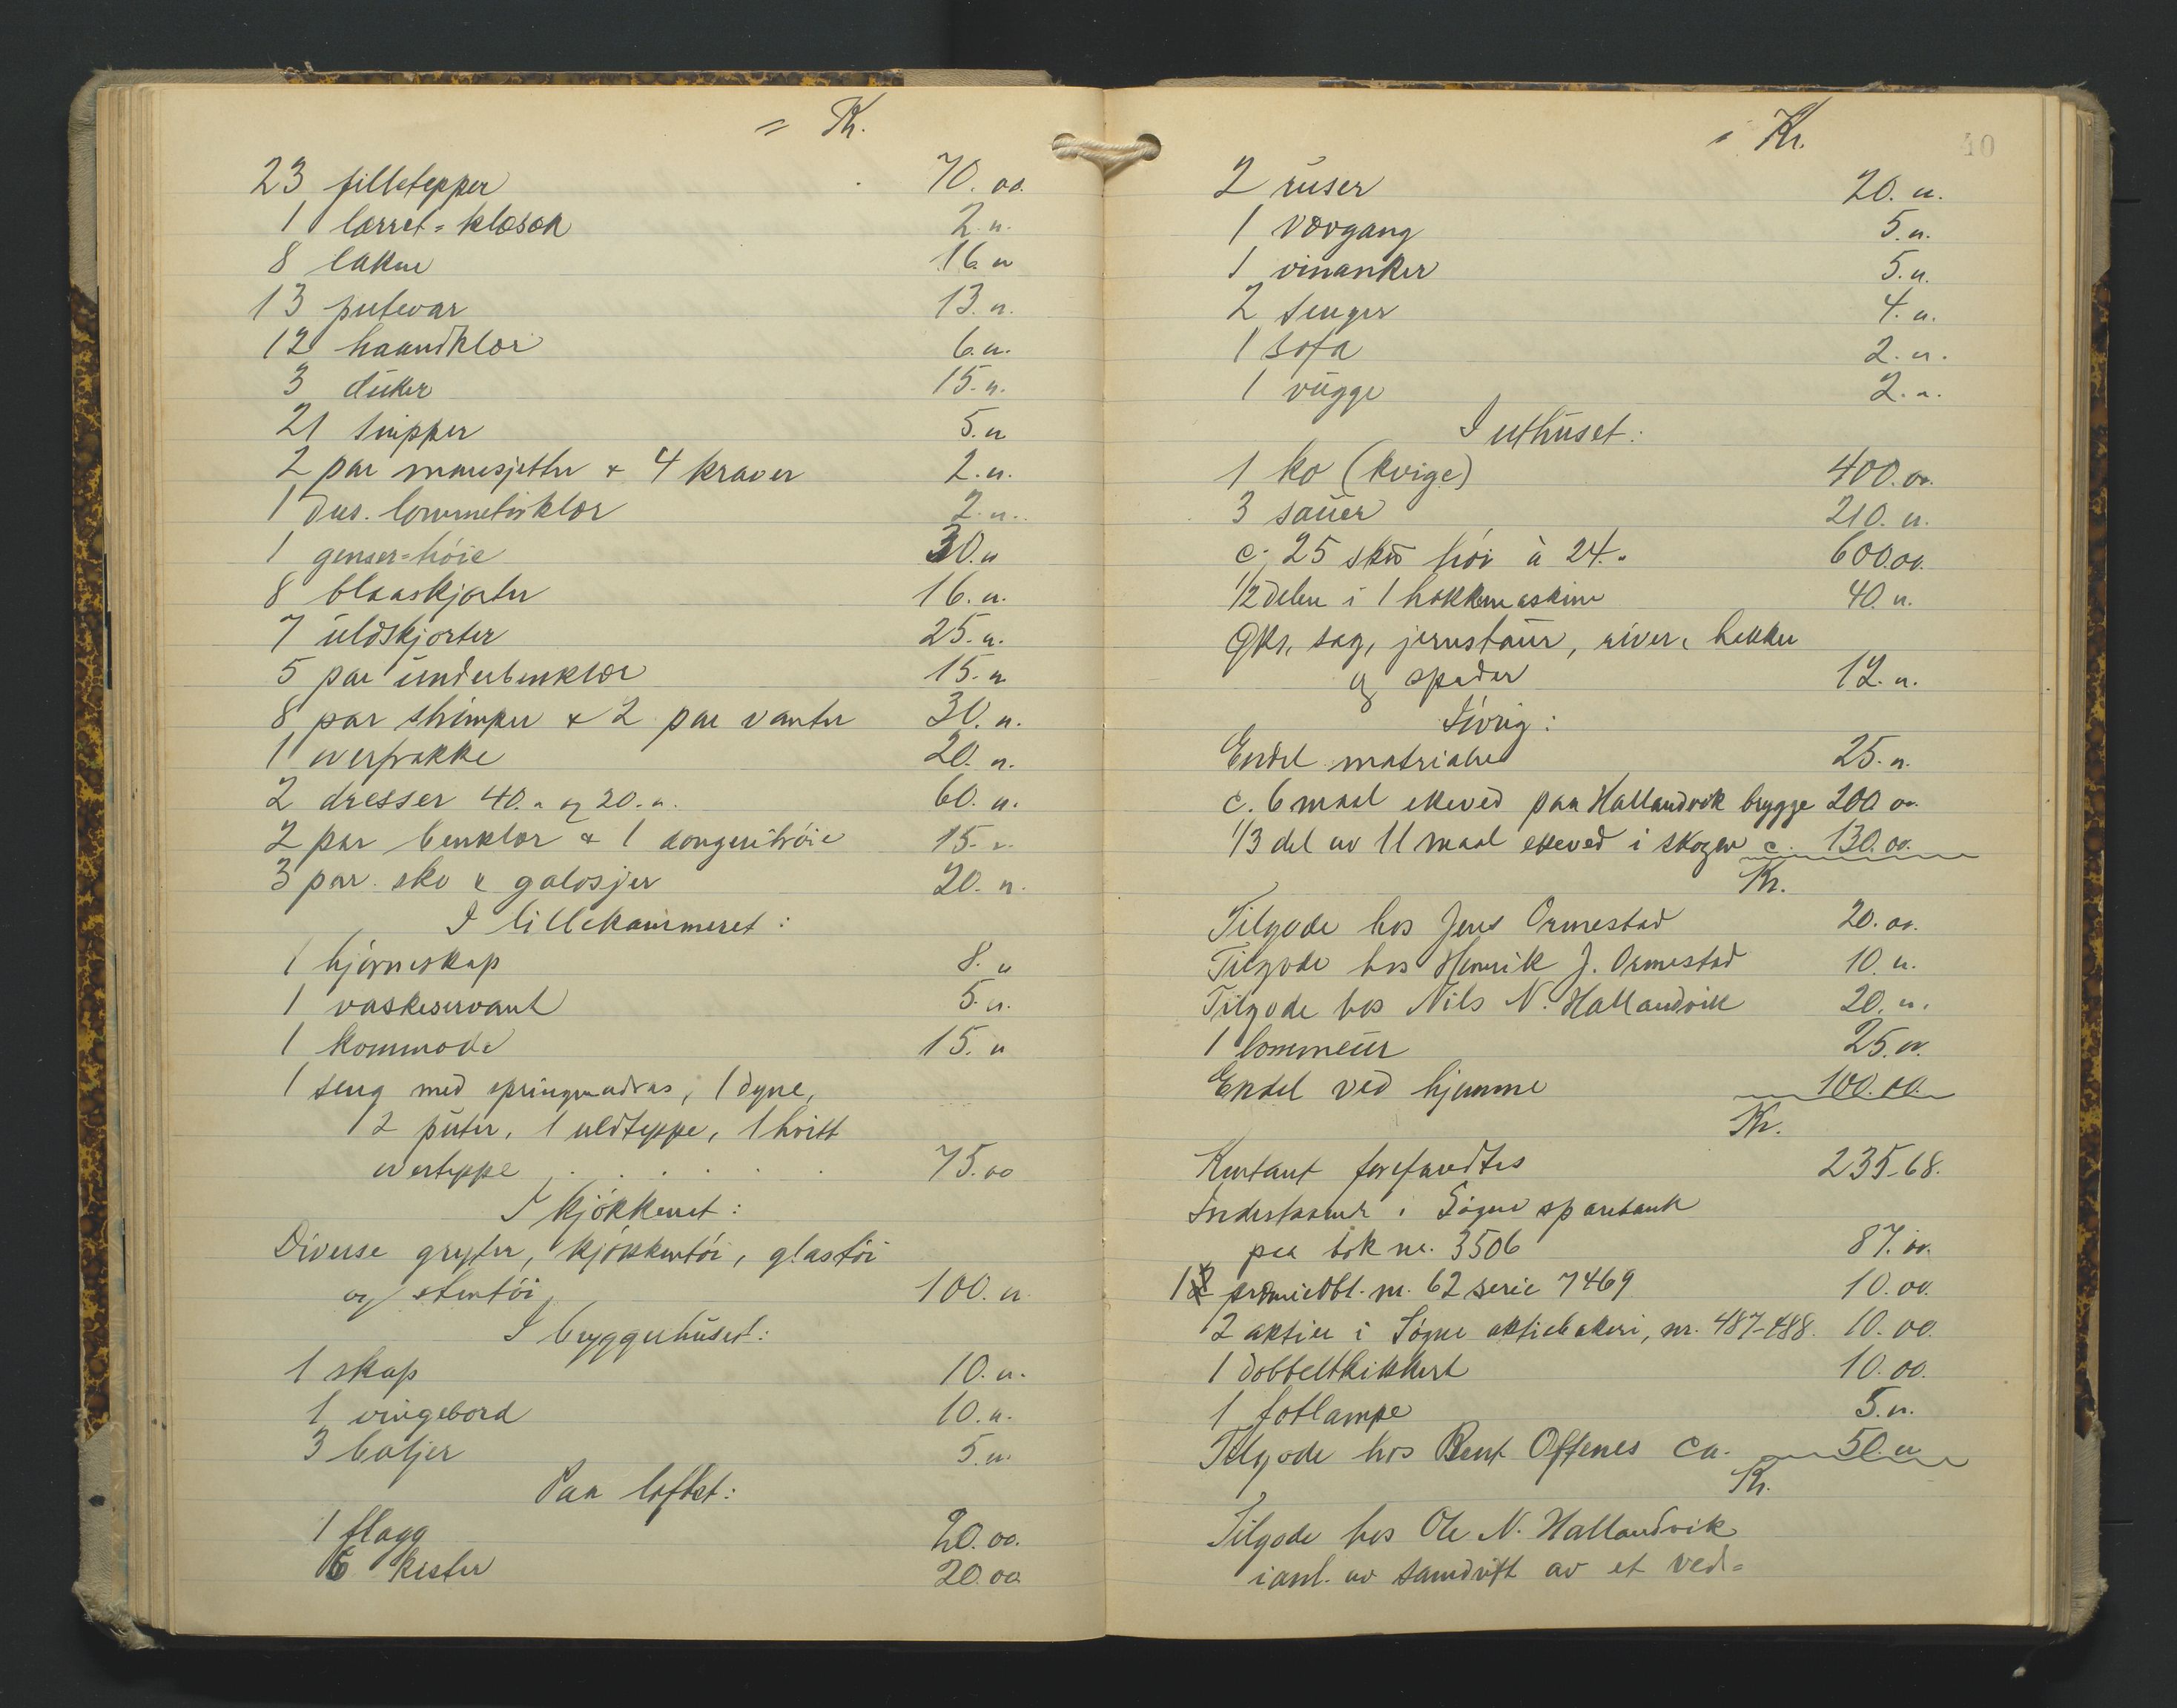 = Kr.
23 filletepper . 70.00.
1 lærret=klæsæk 2.„.
8 lakne 16.„
13 putevar 13.„.
12 haandklær 6.„.
3 duker 15.„.
21 snipper 5.„
2 par mansjetter & 4 kraver 2.„.
1 dus. lommetørklær 2.„.
1 genser=trøie 30.„
8 blaaskjorter 16.„.
7 uldskjorter 25.„.
5 par underbenklær 15.„
8 par strømper & 2 par vanter 30.„.
1 overfrakke 20.„.
2 dresser 40.„ og 20.„. 60.„.
2 par benklær & 1 dongeritrøie 15.„.
3 par sko & galosjer 20.„.
I lillekammeret:
1 hjørneskap 8.„
1 vaskeservant 5.„.
1 kommode 15.„
1 seng med springmadras, 1 dyne,
2 puter, 1 uldteppe, 1 hvitt
overteppe . . . . . . 75.00
I kjøkkenet:
Diverse gryter, kjøkkentøi, glastøi
og stentøi 100.„
I bryggerhuset:
1 skap 10.„.
1 vingebord 10.„.
3 baljer 5.„.
Paa loftet:
1 flagg 20.00.
6 kister 20.00
Kr. 40
2 ruser 20.„.
1 vævgang 5.„.
1 vinanker 5.„.
2 senger 4.„.
1 sofa 2.„.
1 vugge 2.„.
I uthuset:
1 ko (kvige) 400.00.
3 sauer 210.„.
c. 25 skð høi à 24.„ 600.00.
1/2 delen i 1 hakkemaskine 40.„.
Øks, sag, jernstaur, river, hakker
og spader 12.„.
Iøvrig:
Endel matrialer 25.„.
c. 6 maal ekeved paa Hallandvik brygge 200.00.
1/3 del av 11 maal ekeved i skogen c. 130.00.
Kr.
Tilgode hos Jens Ormestad 20.00.
Tilgode hos Henrik J. Ormestad 10.„.
Tilgode hos Nils N. Hallandvik 20.„.
1 lommeur 25.00.
Endel ved hjemme 100.00.
Kr.
Kontant forefandtes 235.68.
Indestaaende i Søgne sparebank
paa bok nr. 3506 87.00.
1 præmieobl. nr. 62 serie 7469 10.00.
2 aktier i Søgne aktiebakeri, nr. 487-488. 10.00.
1 dobbeltkikkert 10.00.
1 fotlampe 5.„.
Tilgode hos Bent Offenes ca. 50.„
Kr.
Tilgode hos Ole N. Hallandvik
i anl. av samdrift av et ved=